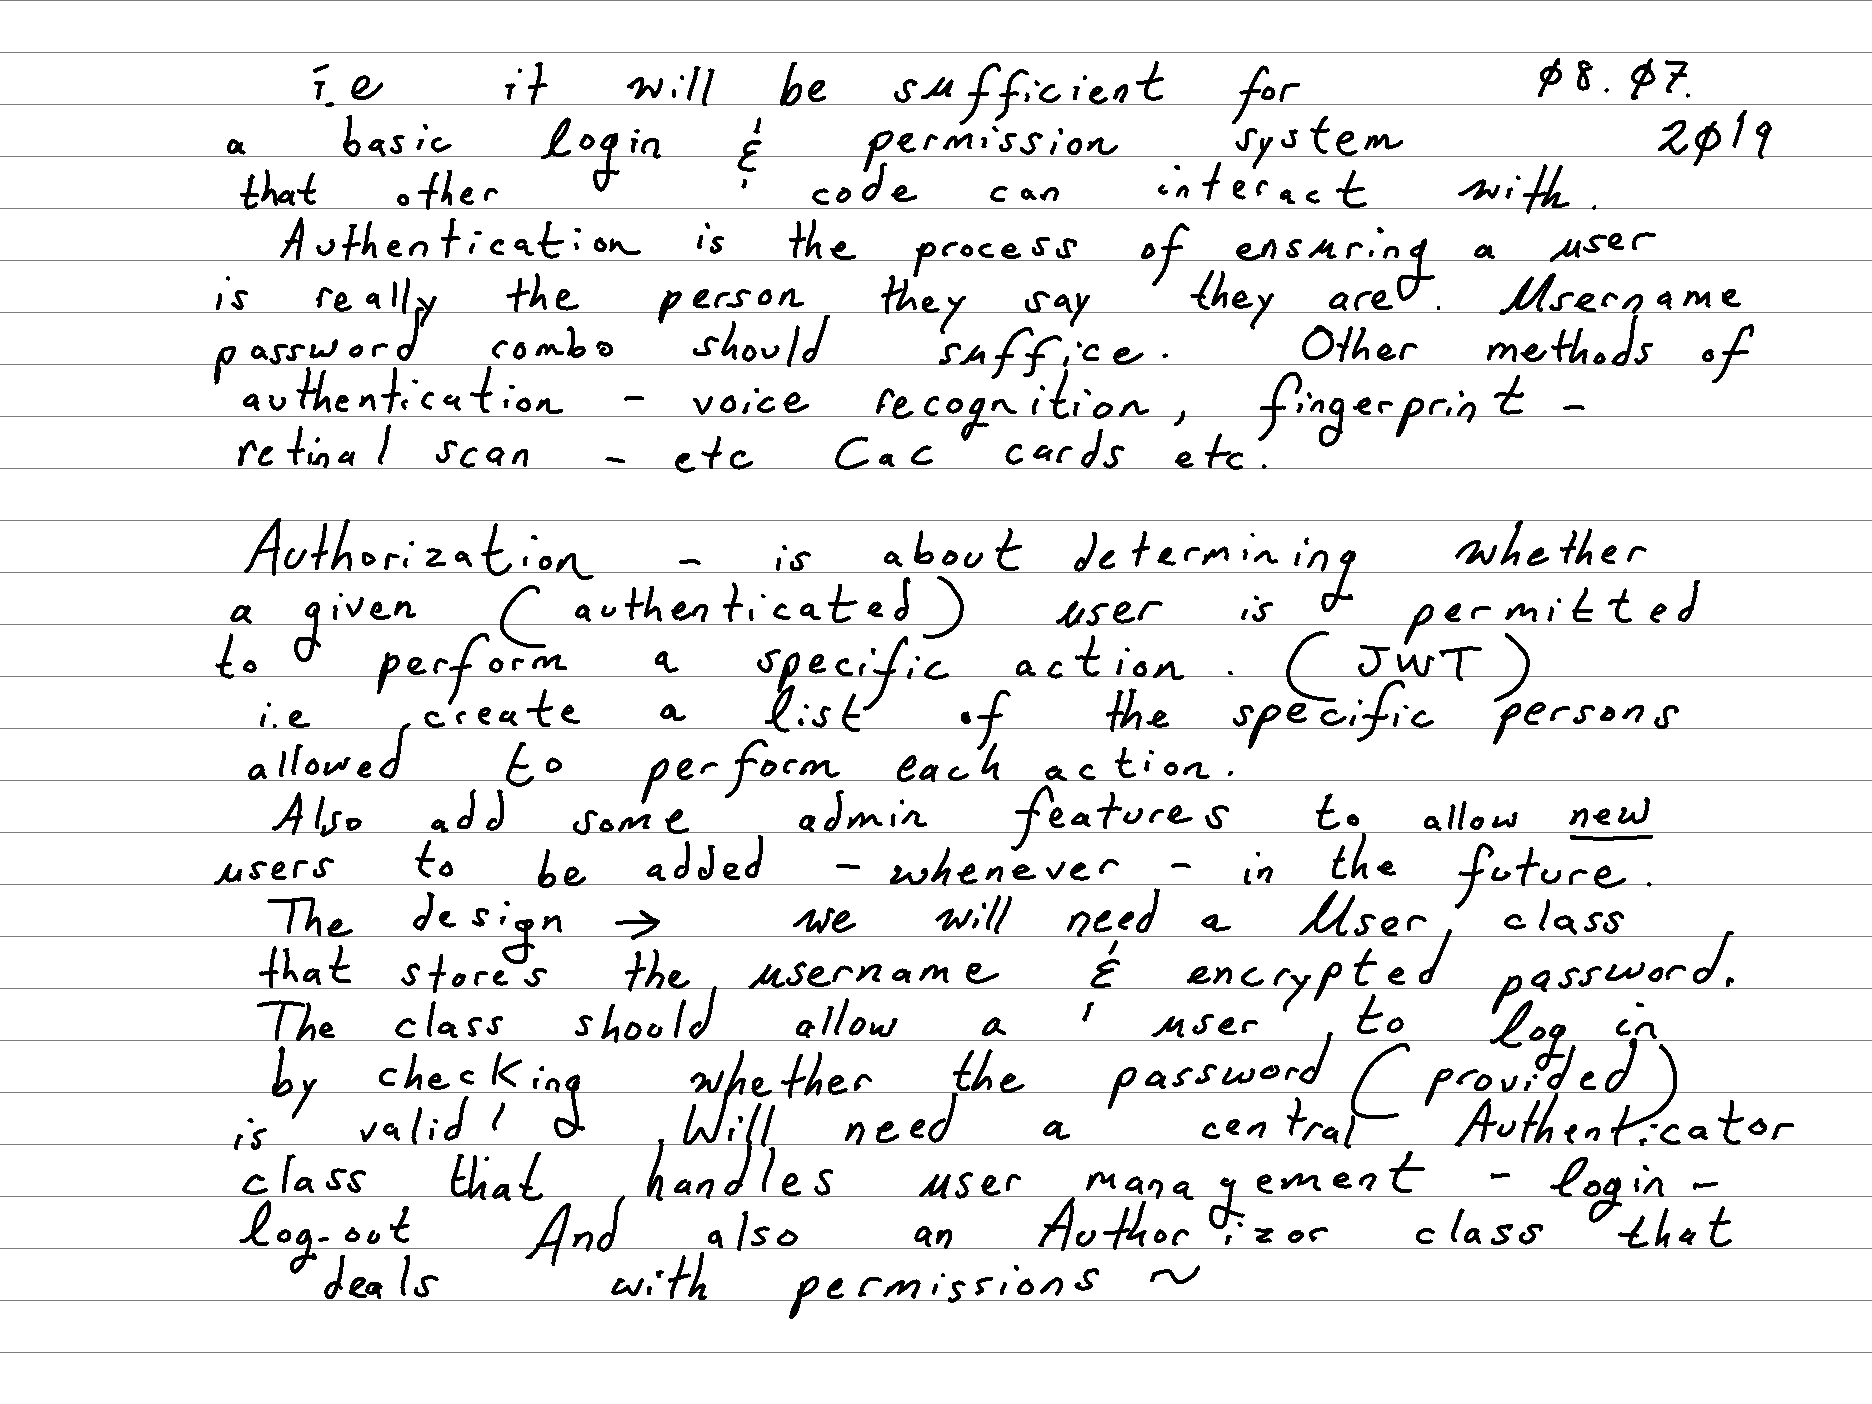 i.e it will be sufficient for ø8.ø7.
a basic login & permission system 2ø19
that other code can interact with.
Authentication is the process of ensuring a user
is really the person they say they are. Username
password combo should suffice. Other methods of
authentication - voice recognition, fingerprint -
retinal scan - etc Cac cards etc.
Authorization - is about determining whether
a given (authenticated) user is permitted
to perform a specific action. (JWT)
i.e create a list of the specific persons
allowed to perform each action.
Also add some admin features to allow new
users to be added - whenever - in the future.
The design → we will need a User class
that stores the username & encrypted password.
The class should allow a user to log in
by checking whether the password (provided)
is valid! Will need a central Authenticator
class that handles user management - login -
log-out And also an Authorizor class that
deals with permissions ~